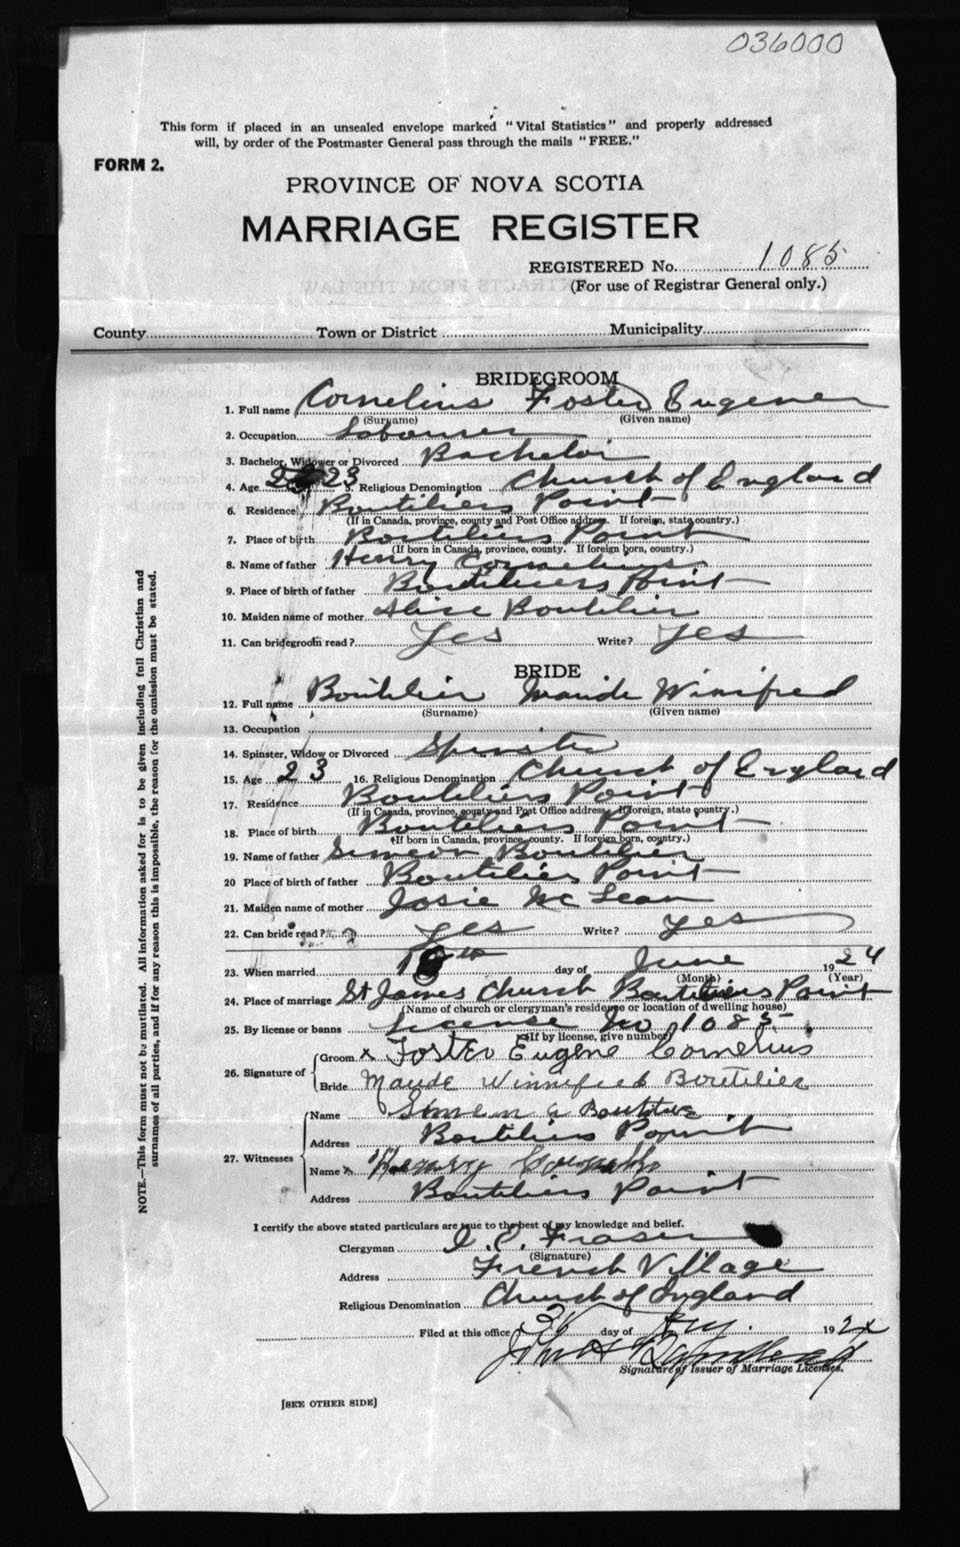 036000
This form if placed in an unsealed envelope marked "Vital Statistics" and properly addressed
will, by order of the Postmaster General pass through the mails "FREE."
FORM 2.
PROVINCE OF NOVA SCOTIA
MARRIAGE REGISTER
REGISTERED No. 1085
(For use of Registrar General only.)
County Town or District Municipality
BRIDEGROOM
1. Full name Cornelius Foster Eugene
(Surname) (Given name)
2. Occupation Labourer
3. Bachelor, Widower or Divorced Bachelor
4. Age 23 5. Religious Denomination Church of England
6. Residence Boutiliers Point
(If in Canada, province, county and Post Office address. If foreign, state country.)
7. Place of birth Boutiliers Point
(If born in Canada, province, county. If foreign born, country.)
8. Name of father Henry Cornelius
9. Place of birth of father Boutiliers Point
10. Maiden name of mother Alice Boutilier
11. Can bridegroom read? Yes Write? Yes
BRIDE
12. Full name Boutilier Maude Winifred
(Surname) (Given name)
13. Occupation
14. Spinster, Widow or Divorced Spinster
15. Age 23 16. Religious Denomination Church of England
17. Residence Boutiliers Point
(If in Canada, province, county and Post Office address. If foreign, state country.)
18. Place of birth Boutiliers Point
(If born in Canada, province, county. If foreign born, country.)
19. Name of father Simeon Boutilier
20 Place of birth of father Boutiliers Point
21. Maiden name of mother Josie McLean
22. Can bride read? Yes Write? Yes
23. When married day of June 1924
(Month) (Year)
24. Place of marriage St James Church Boutiliers Point
(Name of church or clergyman's residence or location of dwelling house)
25. By license or banns License No 1085
(If by license, give number)
26. Signature of Groom x Foster Eugene Cornelius
Bride Maude Winnifred Boutilier
27. Witnesses Name Boutilier
Address Boutiliers Point
Name x Henry
Address Boutiliers Point
I certify the above stated particulars are true to the best of my knowledge and belief.
Clergyman Fraser
(Signature)
Address French Village
Religious Denomination Church of England
Filed at this office day of 192
Signature of Issuer of Marriage Licenses.
[SEE OTHER SIDE]
NOTE.—This form must not be mutilated. All information asked for is to be given including full Christian and
surnames of all parties, and if for any reason this is impossible, the reason for the omission must be stated.